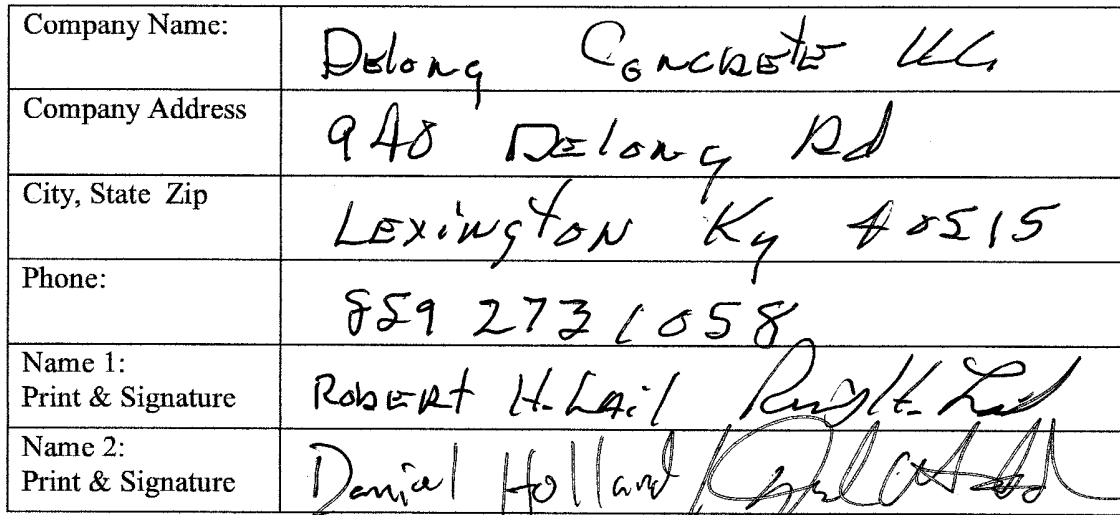 Company Name: Delong Concrete LLC
Company Address 940 Delong Rd
City, State Zip Lexington Ky 40515
Phone: 859 273 1058
Name 1:
Print & Signature Robert H. Lail
Name 2:
Print & Signature Daniel Holland